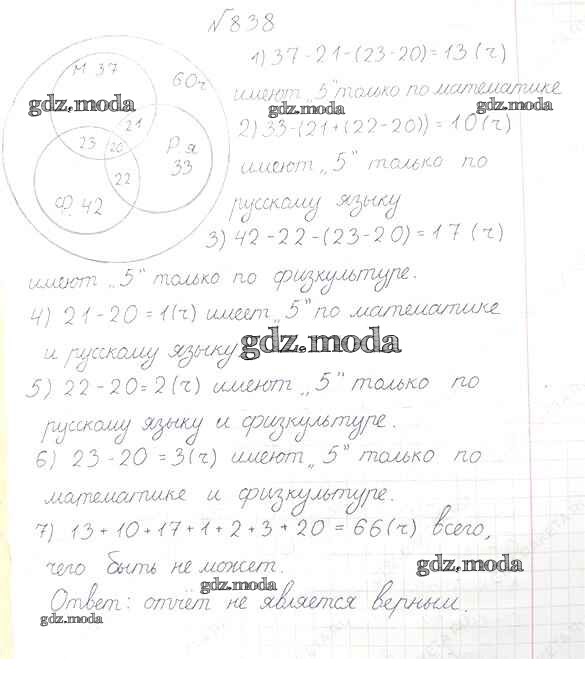 №838
1) 37 - 21 - (23 - 20) = 13 (ч)
имеют „5" только по математике
2) 33 - (21 + (22 - 20)) = 10 (ч)
имеют „5" только по
русскому языку
3) 42 - 22 - (23 - 20) = 17 (ч)
М 37
60ч
gdz.moda
gdz.moda
gdz.moda
21
23
20
Р я
33
22
Ф. 42
имеют „5" только по физкультуре.
4) 21 - 20 = 1 (ч) имеет „5" по математике
и русскому языку
gdz.moda
5) 22 - 20 = 2 (ч) имеют „5" только по
русскому языку и физкультуре.
6) 23 - 20 = 3 (ч) имеют „5" только по
математике и физкультуре.
7) 13 + 10 + 17 + 1 + 2 + 3 + 20 = 66 (ч) всего,
чего быть не может.
gdz.moda
gdz.moda
Ответ: отчёт не является верным.
gdz.moda